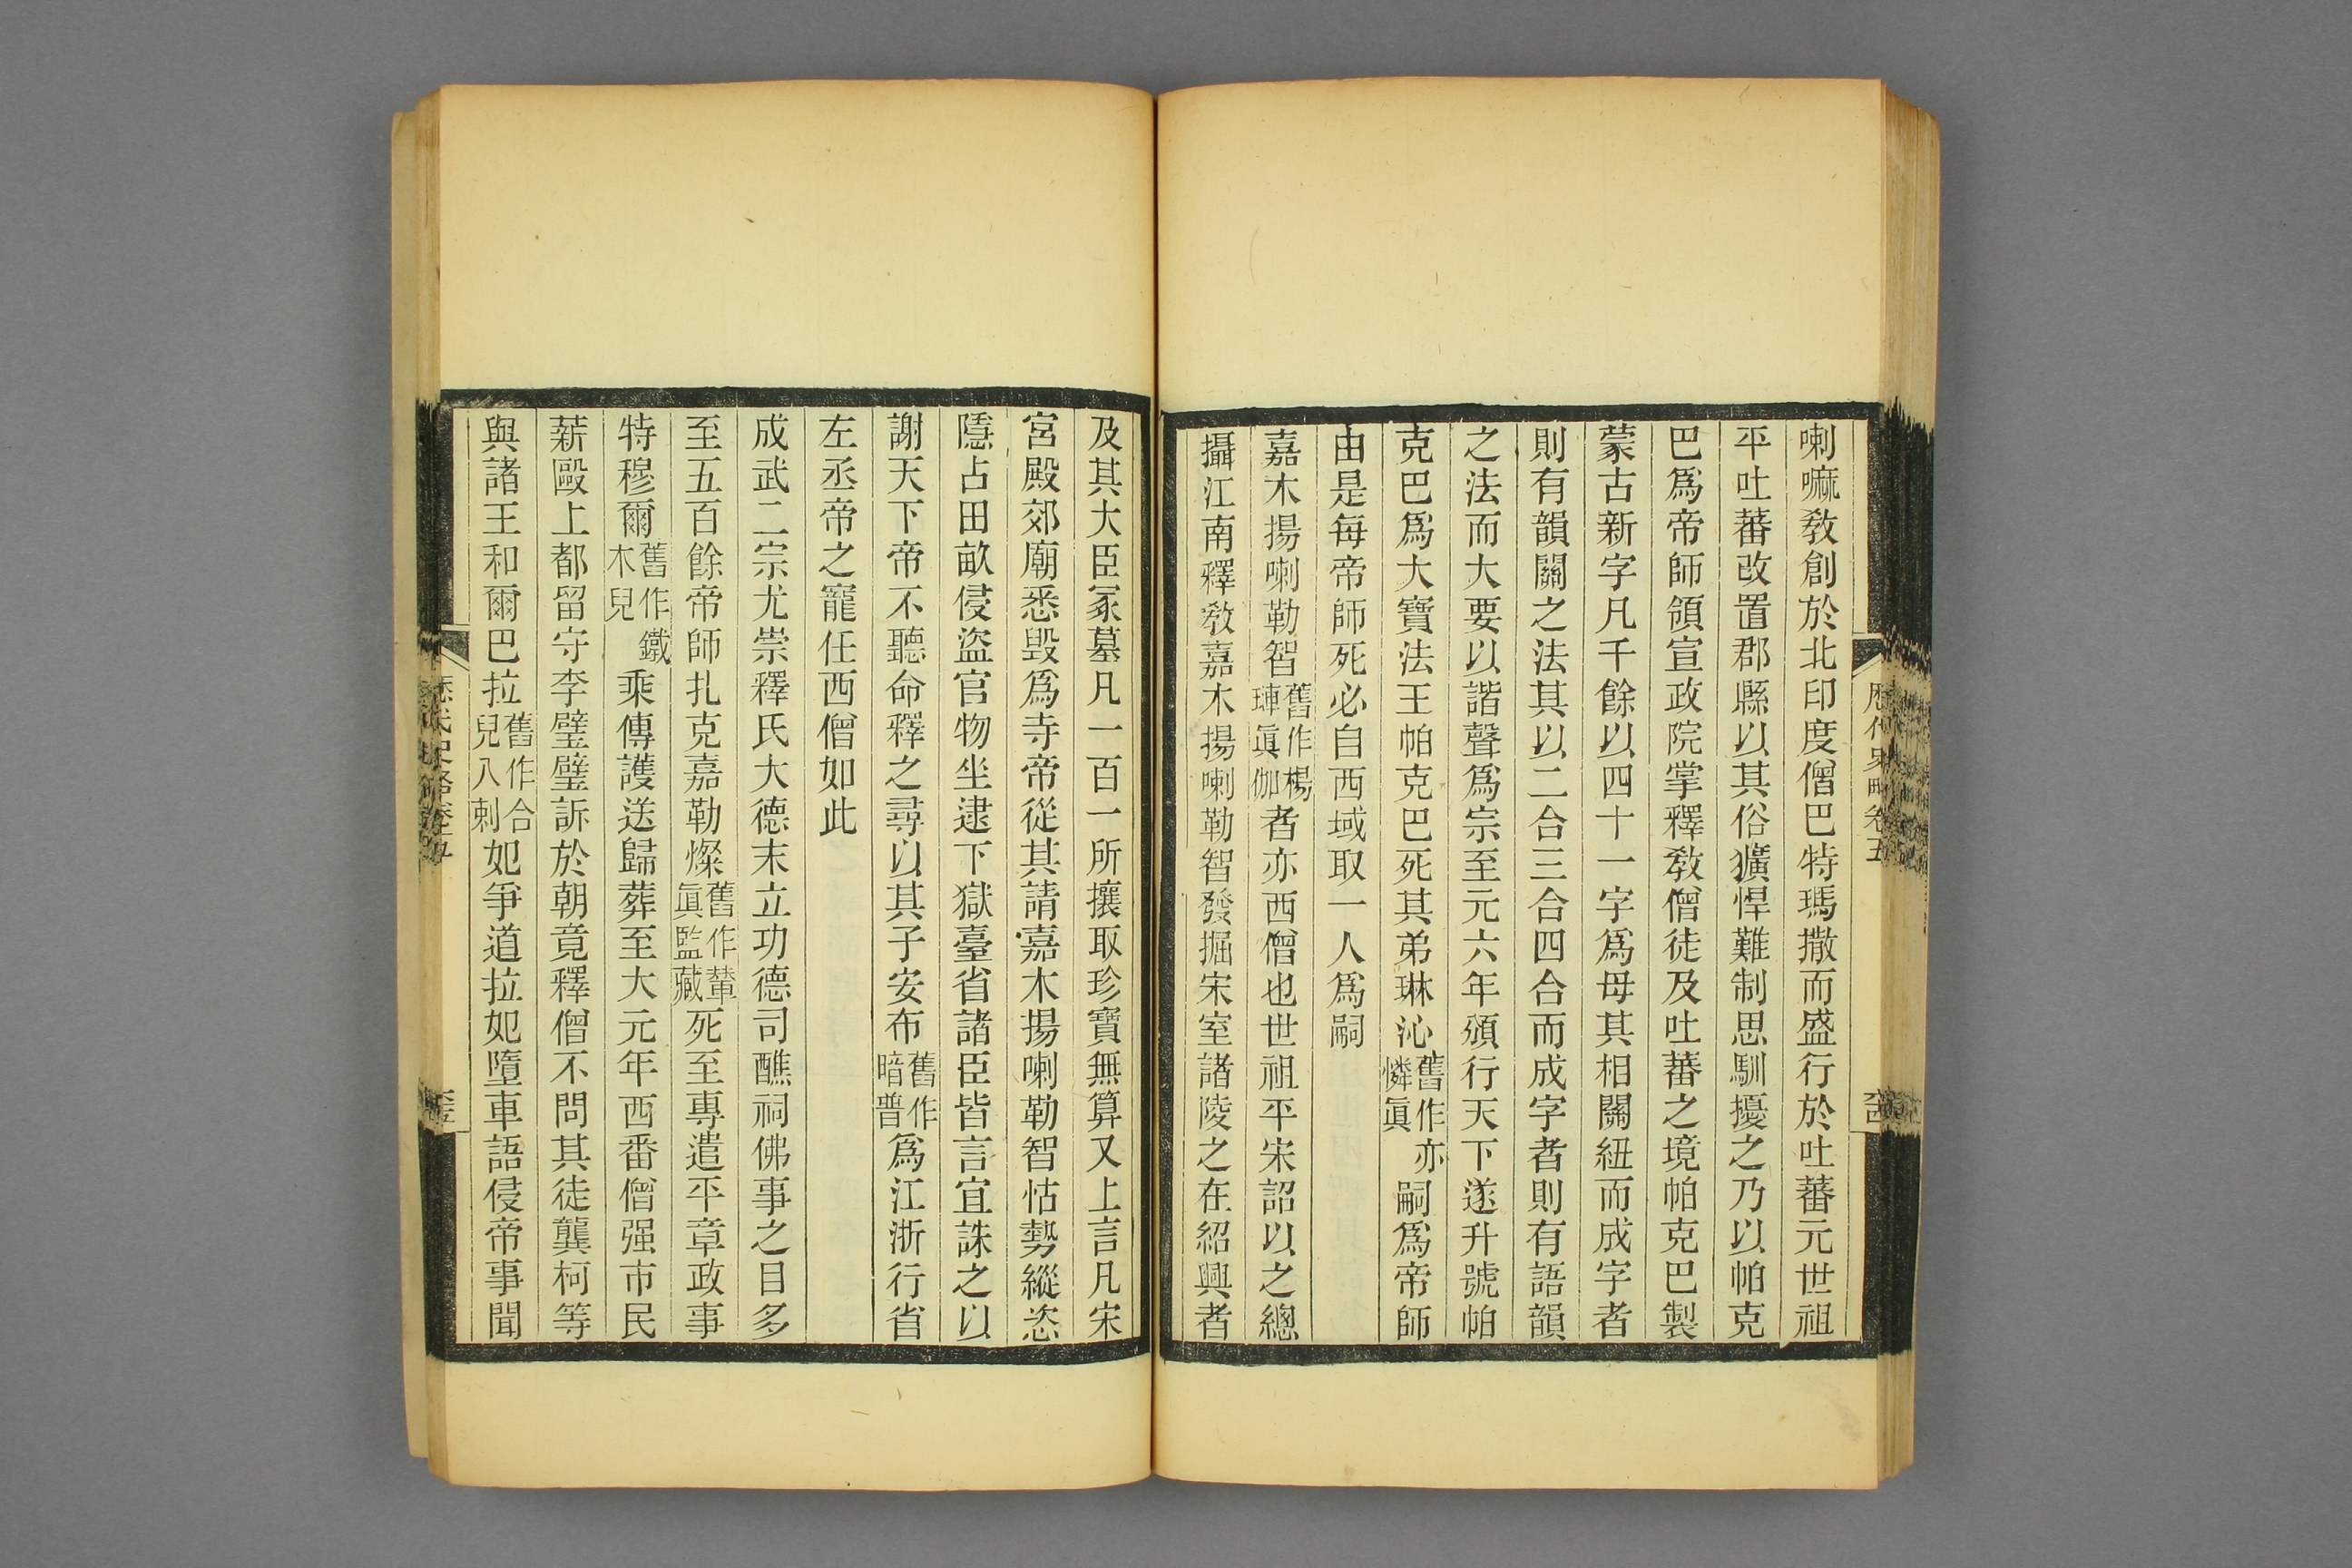 喇嘛敎創於北印度僧巴特瑪撒而盛行於吐蕃元世祖
平吐蕃改置郡縣以其俗獷悍難制思馴擾之乃以帕克
巴爲帝師領宣政院掌釋敎僧徒及吐蕃之境帕克巴製
蒙古新字凡千餘以四十一字爲母其相關紐而成字者
則有韻關之法其以二合三合四合而成字者則有語韻
之法而大要以諧聲爲宗至元六年頒行天下遂升號帕
克巴爲大寶法王帕克巴死其弟琳沁舊作亦憐眞嗣爲帝師
由是每帝師死必自西域取一人爲嗣
嘉木揚喇勒智舊作楊璉眞伽者亦西僧也世祖平宋詔以之總
攝江南釋敎嘉木揚喇勒智發掘宋室諸陵之在紹興者
歷代史略卷五
及其大臣冢墓凡一百一所攘取珍寶無算又上言凡宋
宮殿郊廟悉毀爲寺帝從其請嘉木揚喇勒智怙勢縱恣
隱占田畝侵盜官物坐逮下獄臺省諸臣皆言宜誅之以
謝天下帝不聽命釋之尋以其子安布舊作暗普爲江浙行省
左丞帝之寵任西僧如此
成武二宗尤崇釋氏大德末立功德司醮祠佛事之目多
至五百餘帝師扎克嘉勒燦舊作輦眞監藏死至專遣平章政事
特穆爾舊作鐵木兒乘傳護送歸葬至大元年西番僧强市民
薪毆上都留守李璧璧訴於朝竟釋僧不問其徒龔柯等
與諸王和爾巴拉舊作合兒八剌妃爭道拉妃墮車語侵帝事聞
歷代史略卷五